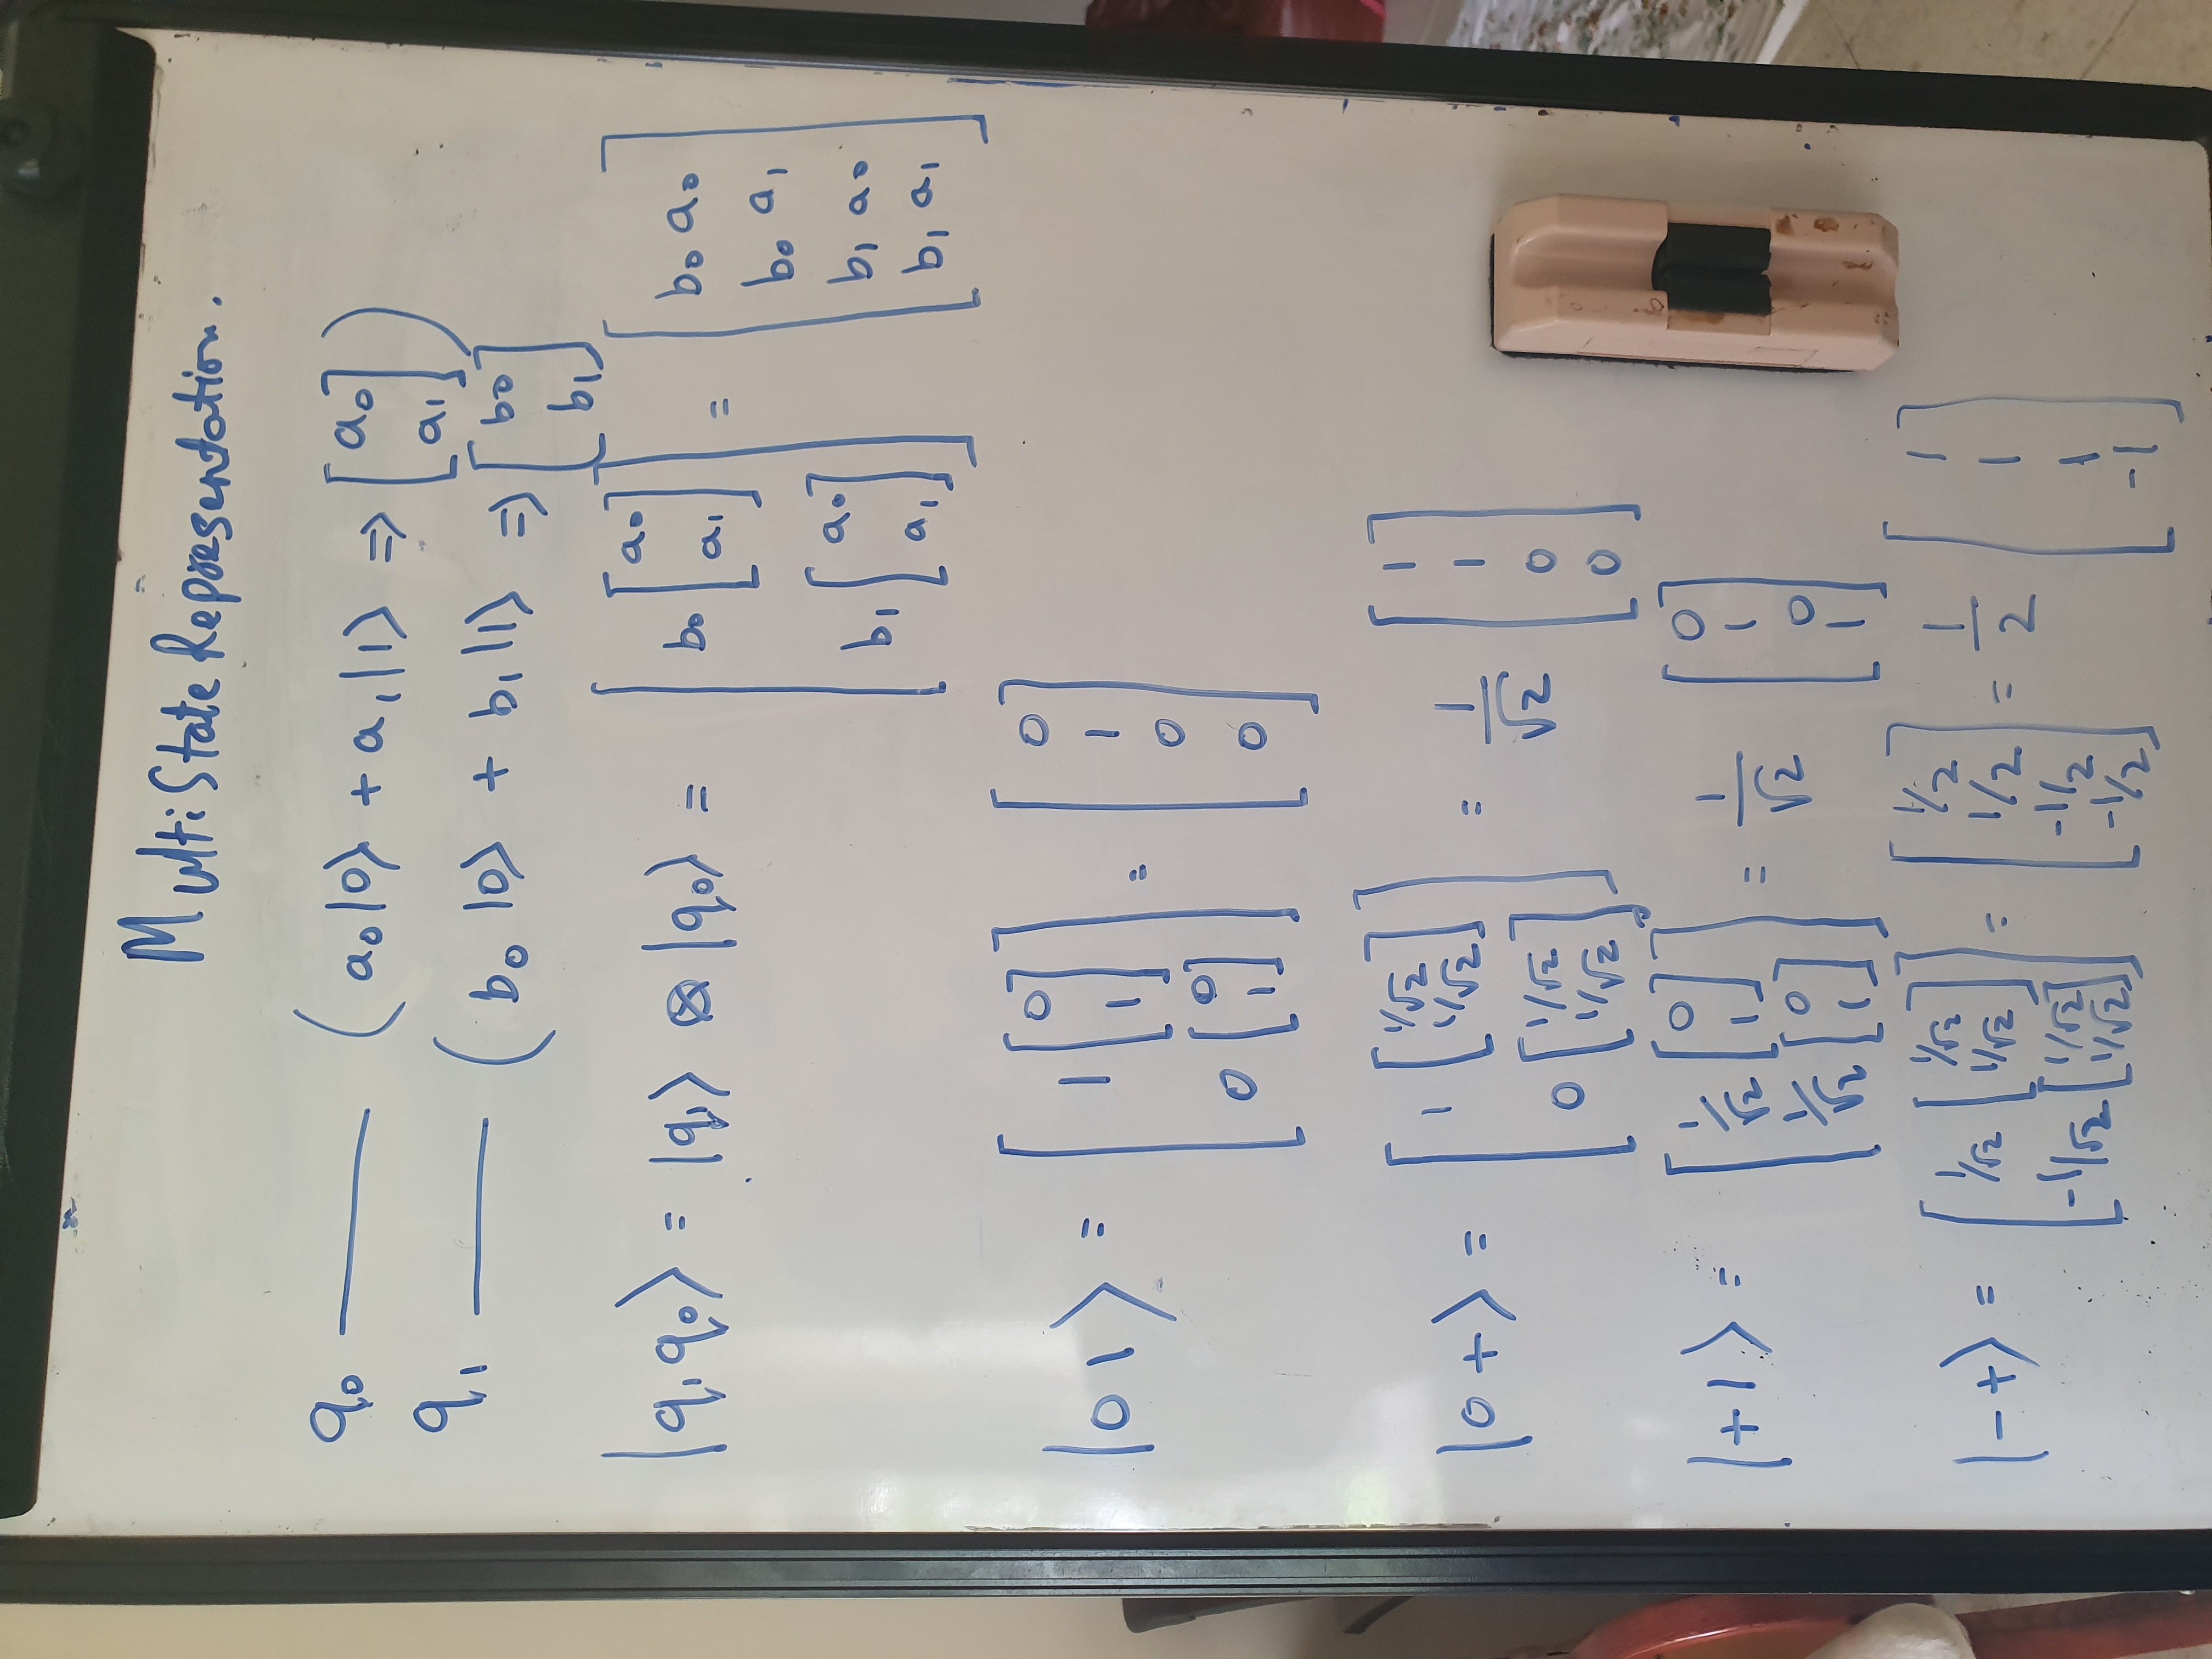 Multi State Representation.
q₀ —— ( a₀|0⟩ + a₁|1⟩ ⇒ [a₀ a₁] )
q₁ —— ( b₀|0⟩ + b₁|1⟩ ⇒ [b₀ b₁]
|q₁q₀⟩ = |q₁⟩ ⊗ |q₀⟩ = [b₀[a₀ a₁] b₁[a₀ a₁]] = [b₀a₀ b₀a₁ b₁a₀ b₁a₁]
|01⟩ = [1[0 1] 0[0 1]] = [0 1 0 0]
|0+⟩ = [1[1/√2 1/√2] 0[1/√2 1/√2]] = 1/√2 [1 1 0 0]
|+1⟩ = [1/√2[0 1] 1/√2[0 1]] = 1/√2 [0 1 0 1]
|-+⟩ = [1/√2[1/√2 1/√2] -1/√2[1/√2 1/√2]] = [1/2 1/2 -1/2 -1/2] = 1/2 [1 1 1 -1]